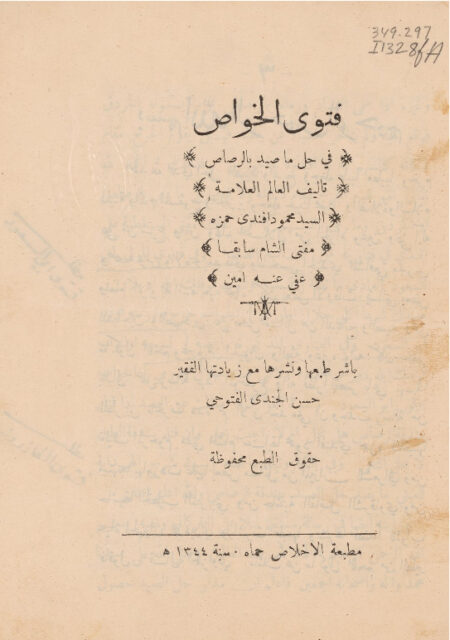 349.297
I1328fA
فتوى الخواص
في حل ما صيد بالرصاص
تاليف العالم العلامة
السيد محمود افندى حمزه
مفتى الشام سابقا
عفي عنه امين
باشر طبعها ونشرها مع زيادتها الفقير
حسن الجندى الفتوحي
حقوق الطبع محفوظة
مطبعة الاخلاص حماه . سنة ١٣٤٤ ه